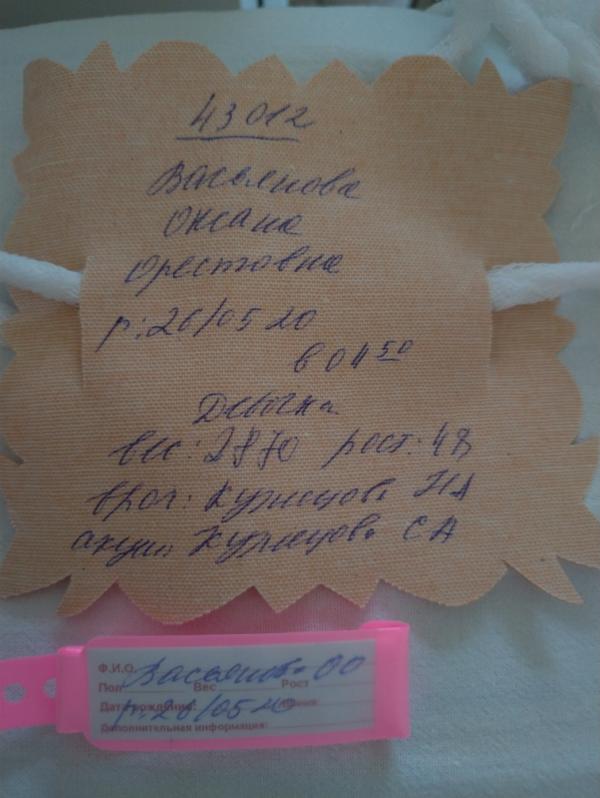 43012
Васьянова
Оксана
Орестовна
р: 26/05 20
в 04 50
Девочка
вес: 2870 рост: 48
врач: Кузнецова НА
акуш Кузнецова СА
Ф.И.О. Васьянова ОО
Пол Вес Рост
Дата рождения: р: 26/05 20
Дополнительная информация: